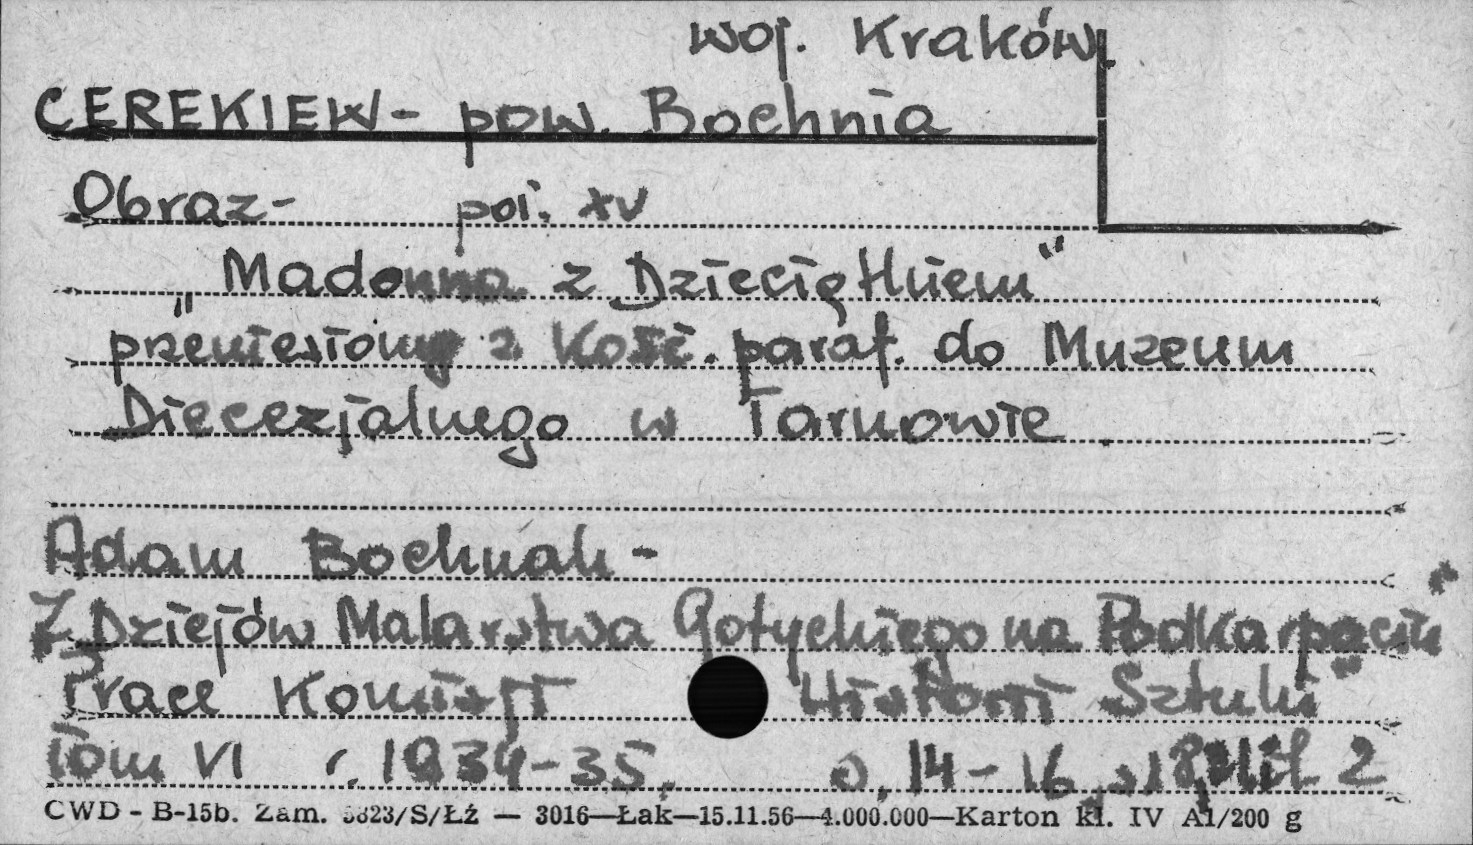 woj. Kraków
CEREKIEW - pow. Bochnia
Obraz - poł. XV
„Madonna z Dzieciątkiem"
przeniesiony z kość. paraf. do Muzeum
Diecezjalnego w Tarnowie.
Adam Bochnak -
Z Dziejów Malarstwa Gotyckiego na Podkarpaciu"
Prace Komisji Historii Sztuki"
Tom VI r. 1934-35. s. 14-16, 18, il 2
CWD - B-15b. Zam. 5823/S/Łź — 3016—Łak—15.11.56—4.000.000—Karton kl. IV A1/200 g